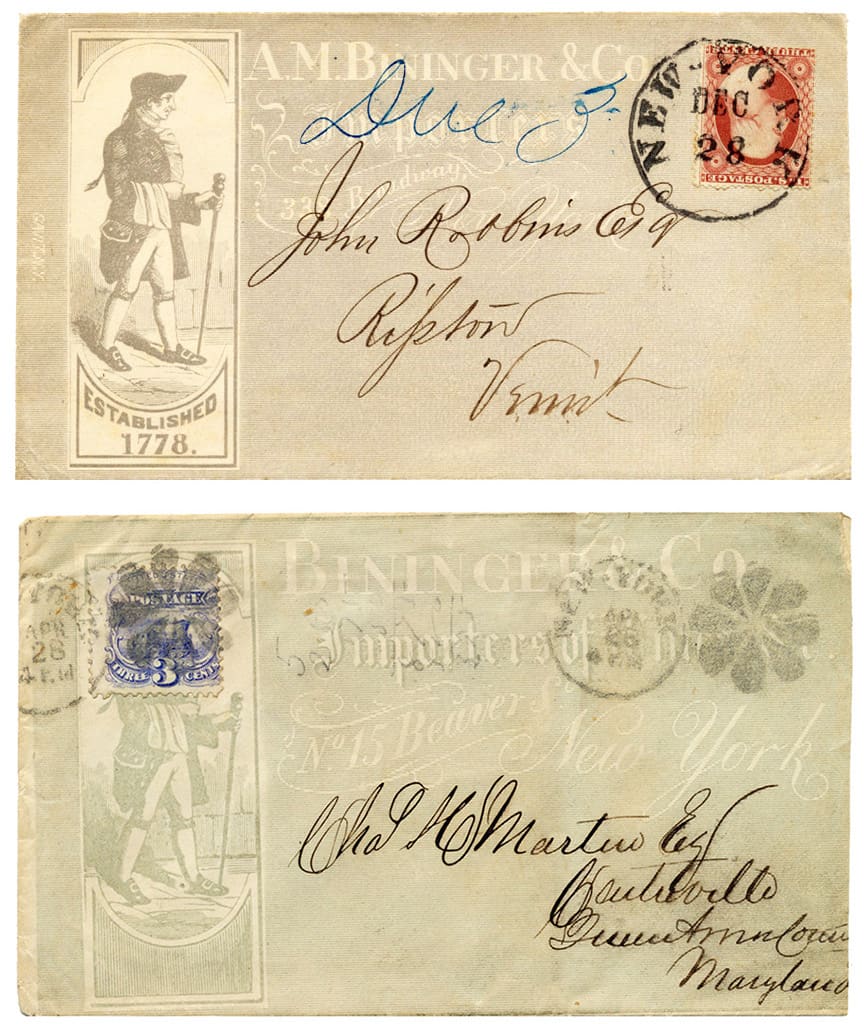 A.M. BININGER & Co.
Importers
Broadway,
Due 3
NEW-YORK
DEC
28
U.S. POSTAGE
John Robbins Esq
Ripton
Vermt
ESTABLISHED
1778.
BININGER & Co.
Importers of
No. 15 Beaver St.
New York
POSTAGE
THREE 3 CENTS
APR
28
NEW YORK
Chas H Martin Esq
Centreville
Queen Anns Coun
Maryland